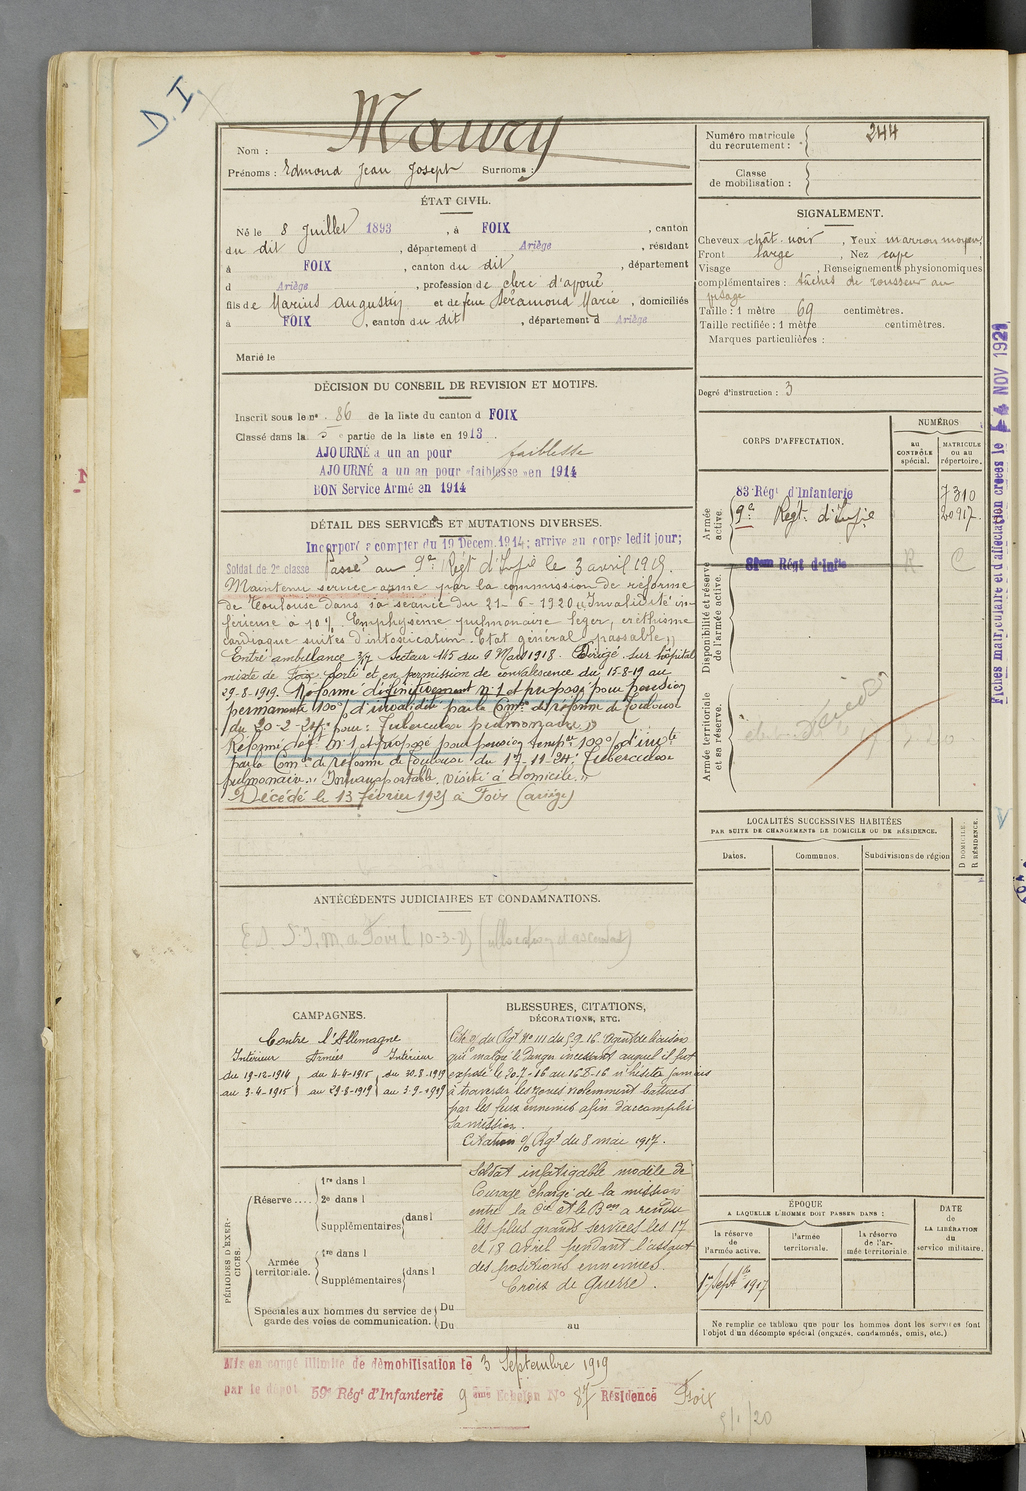 D.I
Nom : Maury
Prénoms : Edmond Jean Joseph Surnoms :
ÉTAT CIVIL.
Né le 8 Juillet 1893, à FOIX, canton
du dit, département d Ariège, résidant
à FOIX, canton du dit, département
d Ariège, profession de clerc d'avoué
fils de Marius Augustin et de feue Séramond Marie, domiciliés
à FOIX, canton du dit, département d Ariège
Marié le
DÉCISION DU CONSEIL DE REVISION ET MOTIFS.
Inscrit sous le nº 86 de la liste du canton d FOIX
Classé dans la 5 e partie de la liste en 1913
AJOURNÉ à un an pour faiblesse
AJOURNÉ à un an pour «faiblesse» en 1914
BON Service Armé en 1914
DÉTAIL DES SERVICES ET MUTATIONS DIVERSES.
Incorporé à compter du 19 Décem. 1914; arrivé au corps ledit jour;
Soldat de 2e classe Passé au 9e Régt d'Infie le 3 avril 1919.
Maintenu service armé par la commission de réforme
de Toulouse dans sa séance du 21-6-1920 "Invalidité in-
férieure à 10% Emphysème pulmonaire léger, eréthisme
cardiaque suites d'intoxication. Etat général passable"
Entré ambulance 3/7 Secteur 145 du 9 Mars 1918. Dirigé sur hôpital
mixte de Foix sorti et en permission de convalescence du 15-8-19 au
29-8-1919. Réformé définitivement nº 1 et proposé pour pension
permanente 100% d'invalidité par la Comon de réforme de Toulouse
du 20-2-24 pour: Tuberculose pulmonaire"
Réformé deft nº 1 et proposé pour pension tempre 100% d'invté
par la Comon de réforme de Toulouse du 17-11-24: Tuberculose
pulmonaire" Intransportable. visité à domicile."
Décédé le 13 Février 1925 à Foix (Ariège)
ANTÉCÉDENTS JUDICIAIRES ET CONDAMNATIONS.
CAMPAGNES.
Contre l'Allemagne
Intérieur Armées Intérieur
du 19-12-1914 du 4-4-1915 du 30-8-1919
au 3-4-1915 au 29-8-1919 au 3-9-1919
BLESSURES, CITATIONS,
DÉCORATIONS, ETC.
Cité o/ du Rgt Nº 111 du 5.9.16. Agent de liaison
qui malgré le danger incessant auquel il fut
exposé le 30-7-16 au 16-8-16 n'hésita jamais
à traverser les zones violemment battues
par les feux ennemis afin d'accomplir
sa mission.
Citation o/o Rgt du 8 mai 1917.
Soldat infatigable modèle de
Courage chargé de la mission
entre la Cie et le Bon a rendu
les plus grands services les 17
et 18 avril pendant l'assaut
des positions ennemies.
Croix de Guerre.
PÉRIODES D'EXERCICES.
Réserve....
1re dans l
2e dans l
Supplémentaires dans l
Armée
territoriale.
1re dans l
Supplémentaires dans l
Spéciales aux hommes du service de
garde des voies de communication.
Du
Du au
Mis en congé illimité de démobilisation le 3 Septembre 1919
par le dépôt 59e Régt d'Infanterie 9 ème Echelon Nº 87 Résidence Foix
5/1/20
Numéro matricule
du recrutement : 244
Classe
de mobilisation :
SIGNALEMENT.
Cheveux chât. noir, Yeux marron moyen,
Front large, Nez cave,
Visage , Renseignements physionomiques
complémentaires : tâches de rousseur au
visage
Taille : 1 mètre 69 centimètres.
Taille rectifiée : 1 mètre centimètres.
Marques particulières :
Degré d'instruction : 3
CORPS D'AFFECTATION.
NUMÉROS
au
CONTRÔLE
spécial.
MATRICULE
ou au
répertoire.
Armée
active.
83e Régt d'Infanterie 7310
9e Regt. d'Infie 20917
Disponibilité et réserve
de l'armée active.
81ème Régt d'Infie R C
Armée territoriale
et sa réserve.
Décédé
LOCALITÉS SUCCESSIVES HABITÉES
PAR SUITE DE CHANGEMENTS DE DOMICILE OU DE RÉSIDENCE.
Dates.
Communes.
Subdivisions de région
D DOMICILE.
R RÉSIDENCE.
ÉPOQUE
A LAQUELLE L'HOMME DOIT PASSER DANS :
la réserve
de l'armée active.
l'armée
territoriale.
la réserve
de l'ar-
mée territoriale.
DATE
de
LA LIBÉRATION
du
service militaire.
1er Septbre 1917
Ne remplir ce tableau que pour les hommes dont les services font
l'objet d'un décompte spécial (engagés, condamnés, omis, etc.)
Fiches matriculaire et d'affectation créées le 4 NOV 1921